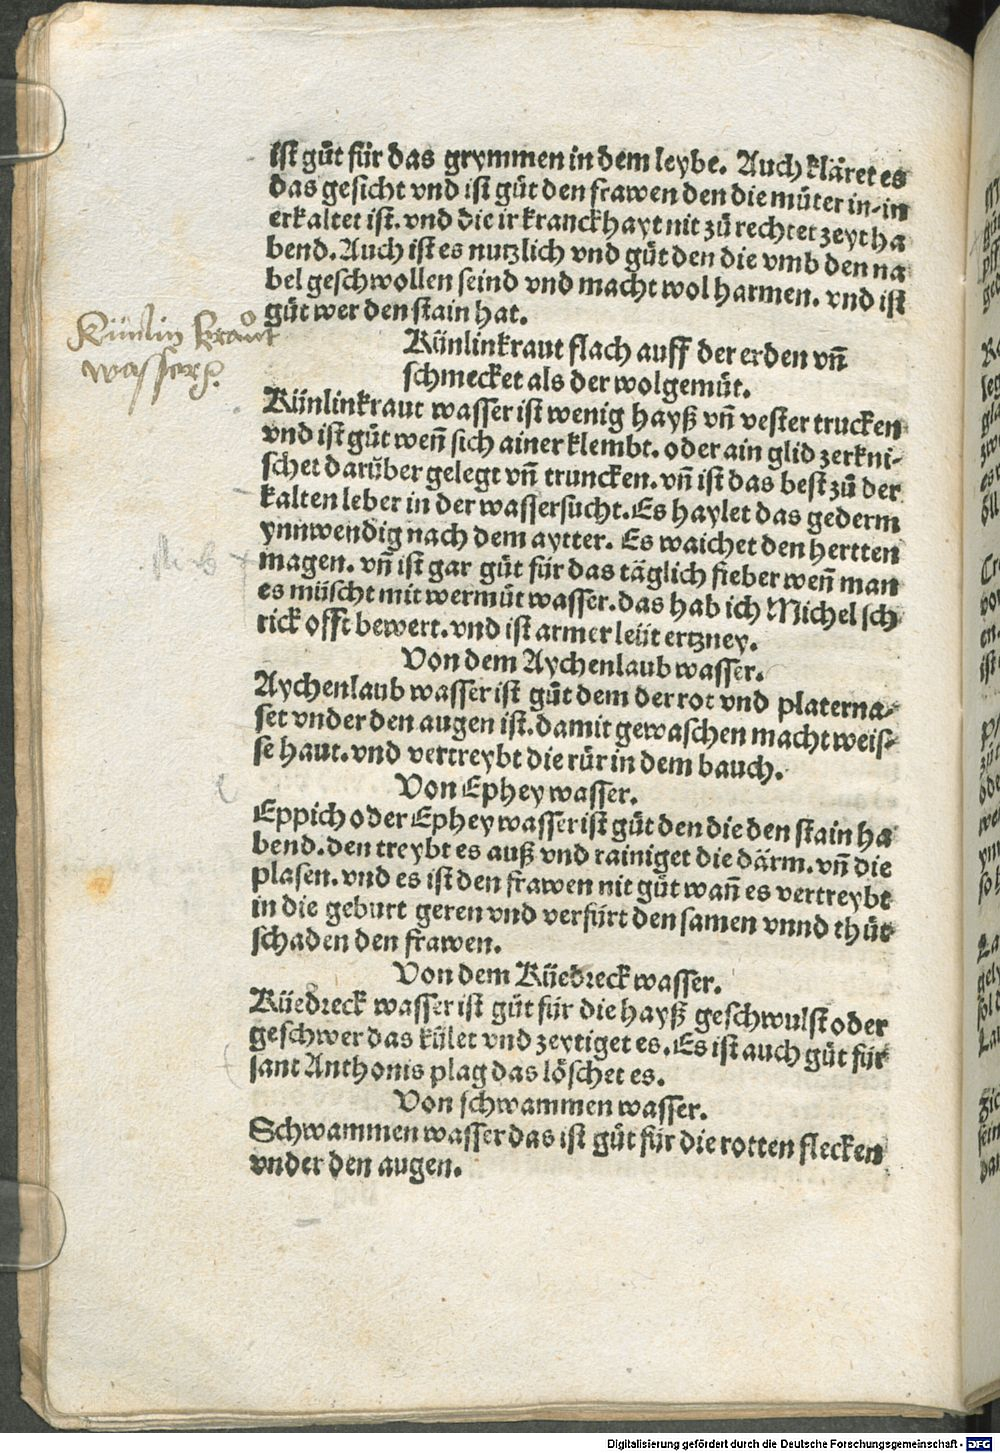 ist gůt für das grymmen in dem leybe. Auch kläret es
das gesicht vnd ist gůt den frawen den die můter in-in
erkaltet ist. vnd die ir kranckhayt nit zů rechtet zeyt ha
bend. Auch ist es nutzlich vnd gůt den die vmb den na
bel geschwollen seind vnd macht wol harmen. vnd ist
gůt wer den stain hat.
Künlin kraůt
wasser
Künlinkraut flach auff der erden vñ
schmecket als der wolgemůt.
Künlinkraut wasser ist wenig hayß vñ vester trucken
vnd ist gůt weñ sich ainer klembt. oder ain glid zerkni-
schet darüber gelegt vñ truncken. vñ ist das best zů der
kalten leber in der wassersucht. Es haylet das gederm
ynnwendig nach dem aytter. Es waichet den hertten
magen. vñ ist gar gůt für das täglich fieber weñ man
es müscht mit wermůt wasser. das hab ich Michel sch
rick offt bewert. vnd ist armer leüt ertzney.
Von dem Aychenlaub wasser.
Aychenlaub wasser ist gůt dem der rot vnd platerna-
set vnder den augen ist. damit gewaschen macht weis-
se haut. vnd vertreybt die růr in dem bauch.
Von Ephey wasser.
Eppich oder Ephey wasser ist gůt den die den stain ha
bend. den treybt es auß vnd rainiget die därm. vñ die
plasen. vnd es ist den frawen nit gůt wañ es vertreybt
in die geburt geren vnd verfürt den samen vnnd thůt
schaden den frawen.
Von dem Küedreck wasser.
Küedreck wasser ist gůt für die hayß geschwulst oder
geschwer das kület vnd zeytiget es. Es ist auch gůt für
sant Anthonis plag das löschet es.
Von schwammen wasser.
Schwammen wasser das ist gůt für die rotten flecken
vnder den augen.
Digitalisierung gefördert durch die Deutsche Forschungsgemeinschaft - DFG